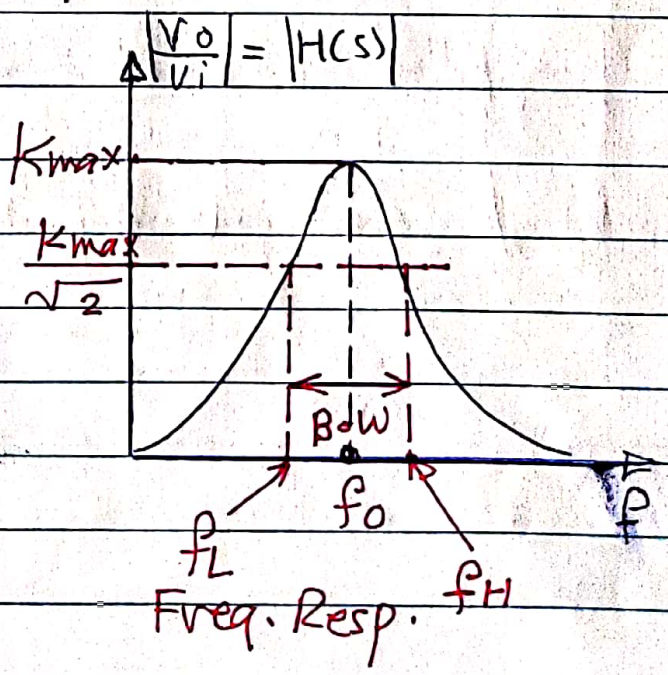 |Vo/Vi| = |H(s)|
Kmax
Kmax/√2
B.W
fo
f
fL
fH
Freq. Resp.